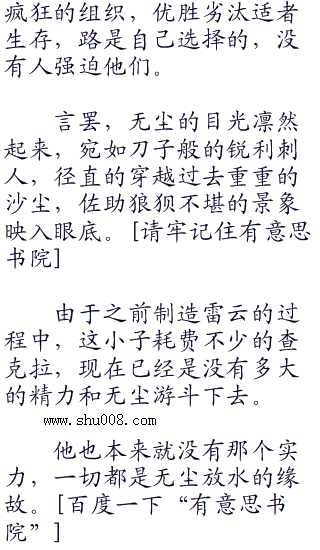 疯狂的组织，优胜劣汰适者
生存，路是自己选择的，没
有人强迫他们。
言罢，无尘的目光凛然
起来，宛如刀子般的锐利刺
人，径直的穿越过去重重的
沙尘，佐助狼狈不堪的景象
映入眼底。[请牢记住有意思
书院]
由于之前制造雷云的过
程中，这小子耗费不少的查
克拉，现在已经是没有多大
的精力和无尘游斗下去。
www.shu008.com
他也本来就没有那个实
力，一切都是无尘放水的缘
故。[百度一下“有意思书
院”]